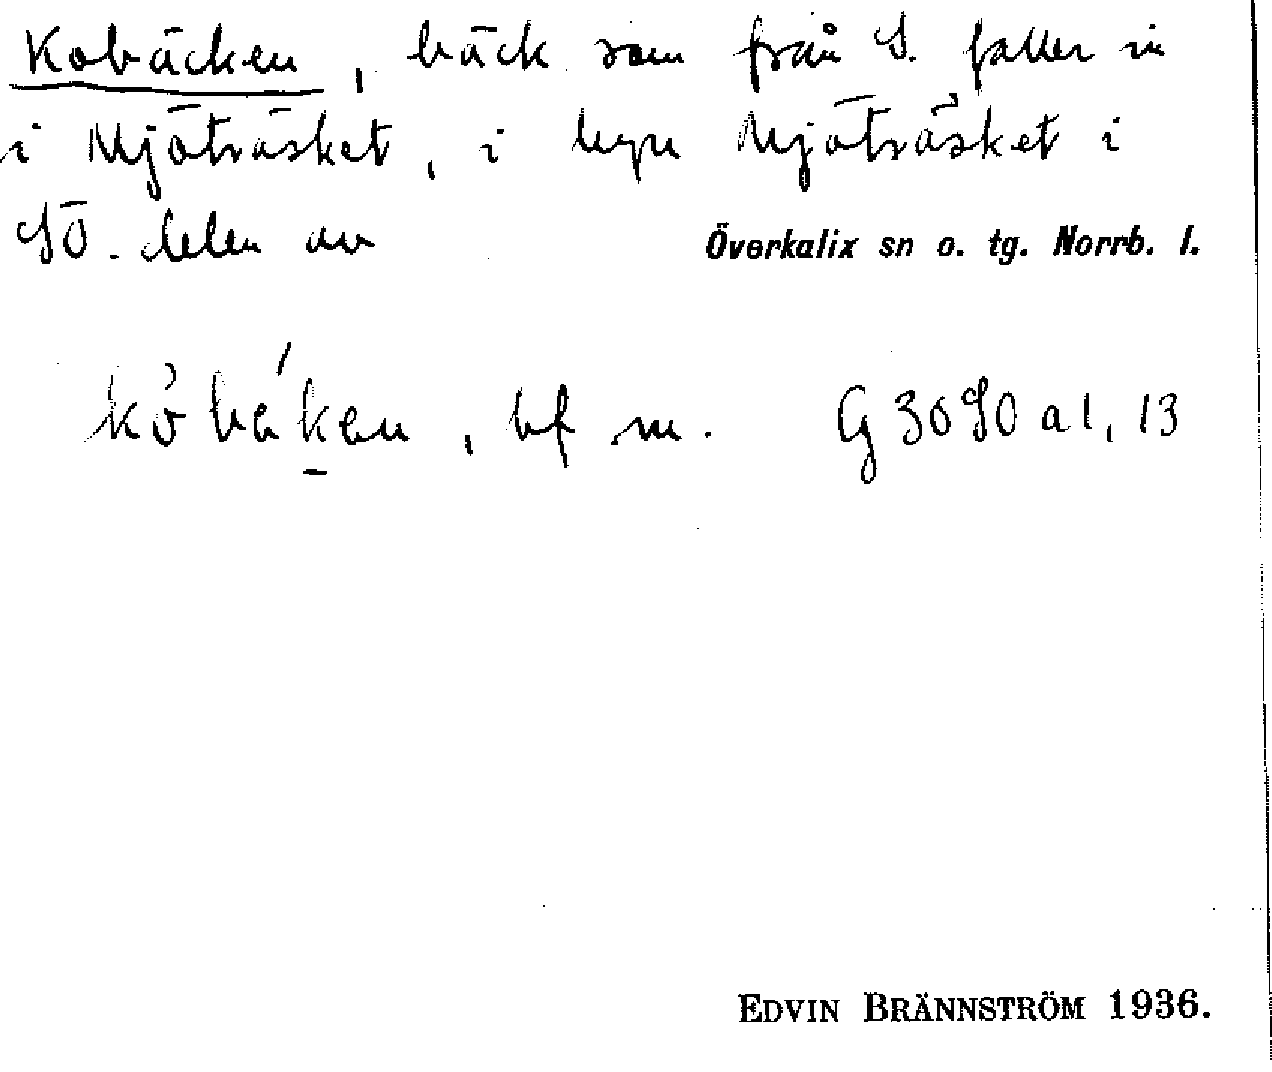 Kobäcken, bäck som från S. faller in
i Mjöträsket, i byn Mjöträsket i
SÖ. delen av Överkalix sn o. tg. Norrb. l.
, bf m. G 3090 a 1, 13
EDVIN BRÄNNSTRÖM 1936.